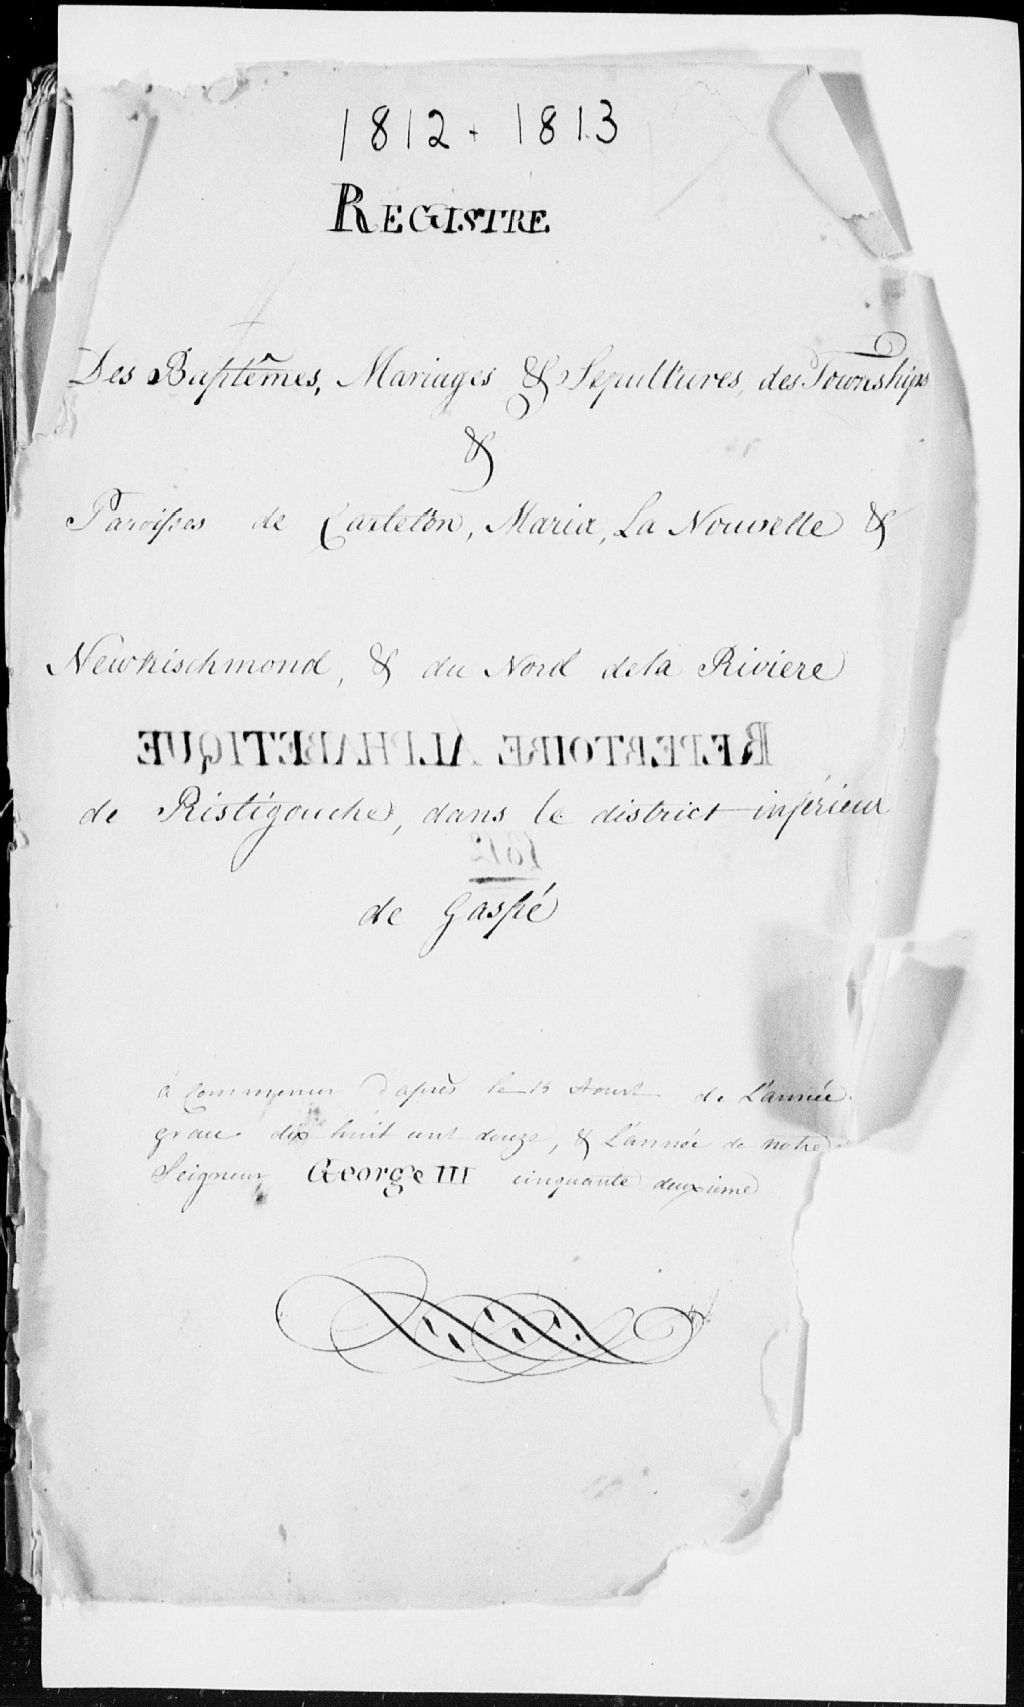 1812 - 1813
REGISTRE
Des Baptêmes, Mariages & Sepultures, des Townships
&
Paroisses de Carleton, Maria, La Nouvelle &
Newkischmond, & du Nord de la Riviere
REPERTOIRE ALPHABETIQUE
de Ristigouche, dans le district inférieur
1812
de Gaspé
à Commencer d'après le 15 Aoust de L'année
grace dix huit cent douze, & L'année de notre
Seigneur George III cinquante deuxième